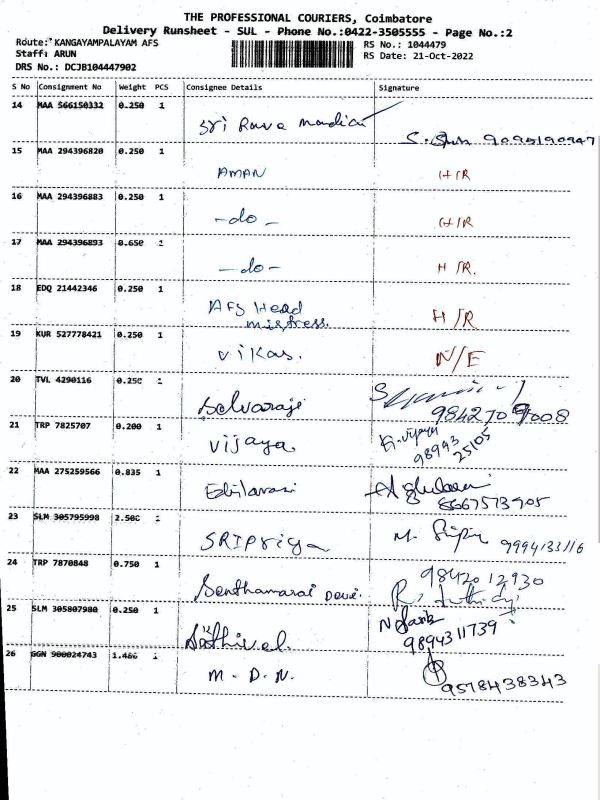 THE PROFESSIONAL COURIERS, Coimbatore
Delivery Runsheet - SUL - Phone No.:0422-3505555 - Page No.:2
Route: KANGAYAMPALAYAM AFS
RS No.: 1044479
Staff: ARUN
RS Date: 21-Oct-2022
DRS No.: DCJB104447902
S No Consignment No Weight PCS Consignee Details Signature
14 MAA 566150332 0.250 1 Sri
15 MAA 294396820 0.250 1 AMAN H/R
16 MAA 294396883 0.250 1 -do- H/R
17 MAA 294396893 0.650 -do- H/R.
18 EDQ 21442346 0.250 1 AFS Head
mistress. H/R
19 KUR 527778421 0.250 1 vikas. N/E
20 TVL 4290116 Selvaraji
21 TRP 7825707 0.200 1 Vijaya 98943
25105
22 MAA 275259566 0.835 1 Ezhilarasi
8667573905
23 SLM 305795998 SRIPriya M. 9994133116
24 TRP 7870848 0.750 1 Senthamarai Devi. 9842012930
25 SLM 305807980 0.250 1 Sakthivel.
9894311739
26 GGN 900024743 1 M. D. N.
9578438343